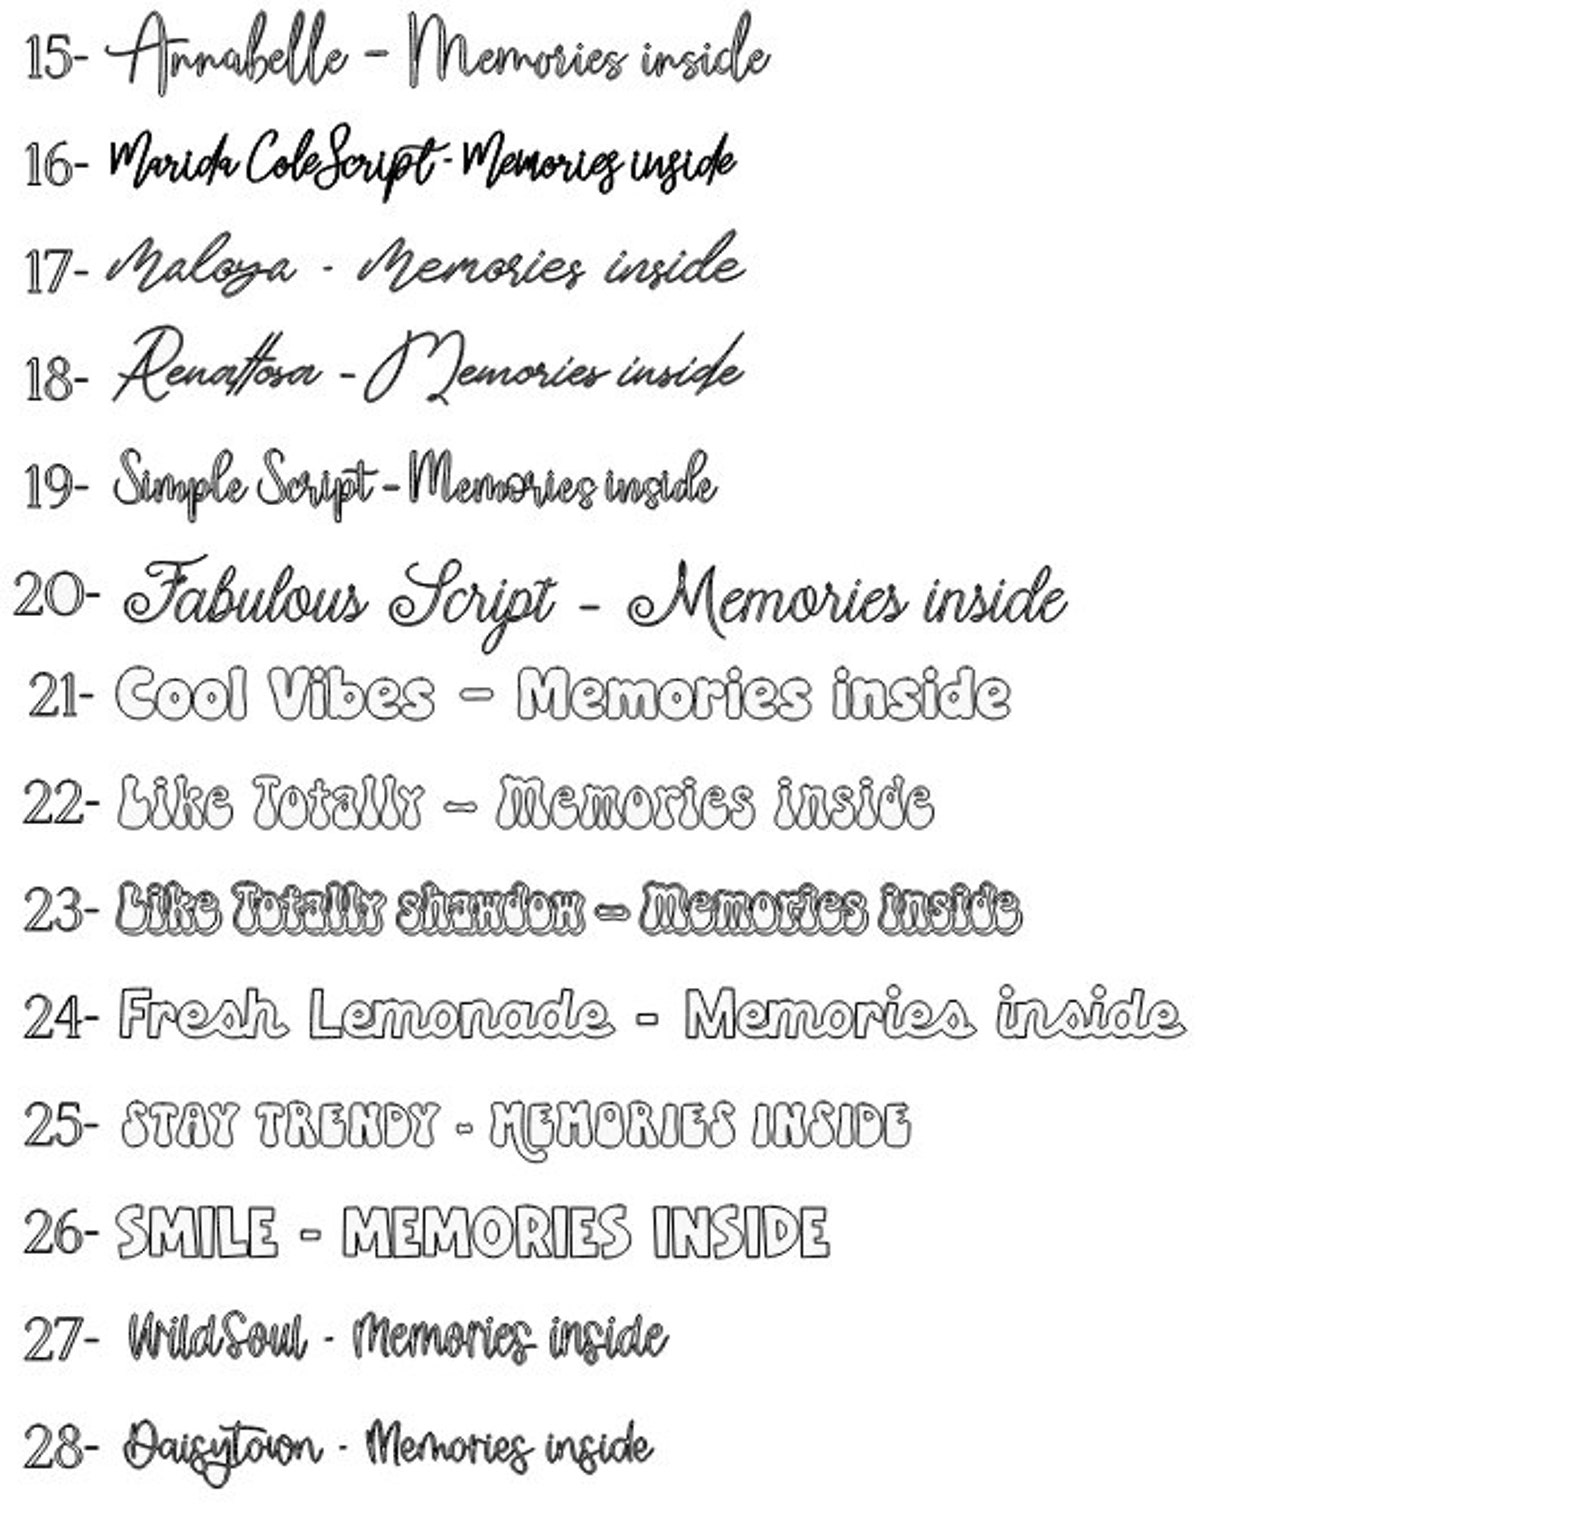 15- Annabelle - Memories inside
16- Marida Cole Script - Memories inside
17- Maloya - Memories inside
18- Renattosa - Memories inside
19- Simple Script - Memories inside
20- Fabulous Script - Memories inside
21- Cool Vibes - Memories inside
22- Like Totally - Memories inside
23- Like Totally shawdow - Memories inside
24- Fresh Lemonade - Memories inside
25- STAY TRENDY - MEMORIES INSIDE
26- SMILE - MEMORIES INSIDE
27- WildSoul - Memories inside
28- Daisytown - Memories inside